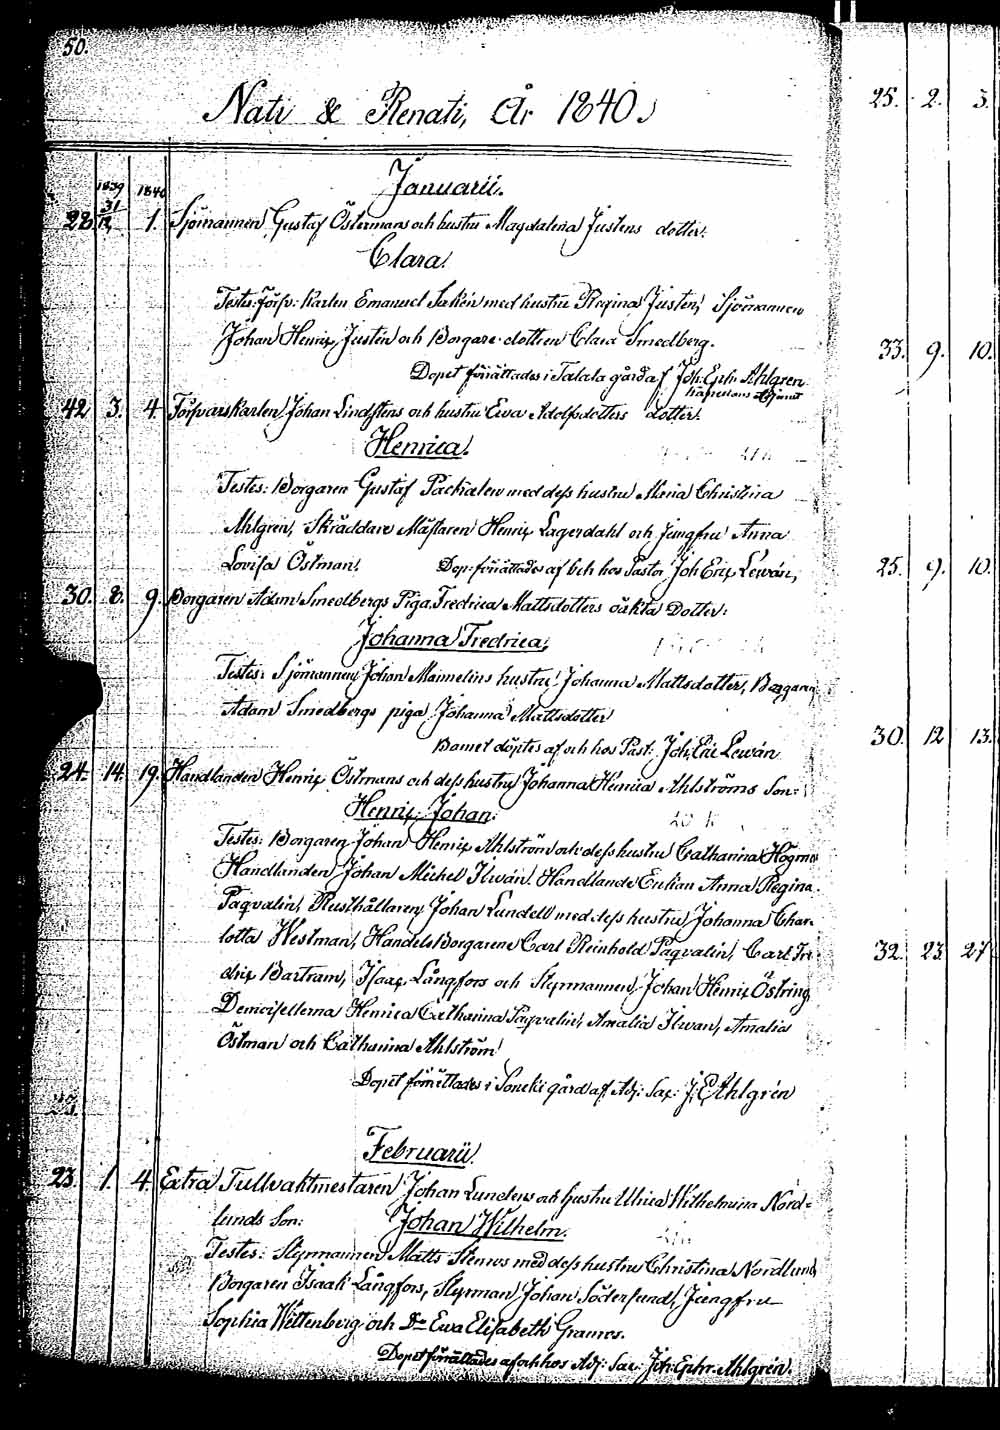 50.
Nati & Renati, År 1840.
Januarii.
1839 1840
28. 31/12 1. Sjömannen Gustaf Östermans och hustru Magdalena Justens dotter:
Clara.
Testes: Försv: Karlen Emanuel med hustru Regina Justen, Sjömannen
Johan Henrix Justen och Borgare-dottren Clara Smedberg.
Dopet förrättades i Talala gård af Joh: Eph: Ahlgren
42 3. 4. Försvarskarlen Johan Lindstens och hustru Ewa Adolfsdotters dotter.
Henrica.
Testes: Borgaren Gustaf med dess hustru Maria Christina
Ahlgren, Skräddare Mästaren Henrix Lagerdahl och Jungfru Anna
Lovisa Östman. Dop: förrättades af och hos Pastor Joh Eric Lewán,
30. 8. 9. Borgaren Adam Smedbergs Piga Fredrica Mattsdotters oäkta Dotter:
Johanna Fredrica.
Testes: Sjömannen Johan hustru Johanna Mattsdotter, Borgaren
Adam Smedbergs piga Johanna Mattsdotter
Barnet döptes af och hos Past: Joh: Eric Lewán
24. 14. 19. Handlanden Henrix Östmans och dess hustru Johanna Henrica Ahlströms Son:
Henrix Johan.
Testes: Borgaren Johan Henrix Ahlström och dess hustru Catharina
Handlanden Johan Michel Ilwán, Handlande Enkan Anna Regina
Paqvalin, Rusthållaren Johan Lundell med dess hustru Johanna Char-
lotta Westman, Handels Borgarene Carl Reinhold Paqvalin, Carl Fre-
drix Bartram, Isaac Långfors och Styrmannen Johan Henrix Östring
Demoisellerna Henrica Catharina Paqvalin, Amalia Ilwan, Amalia
Östman och Catharina Ahlström
Dopet förrättades i gård af Adj: Sac: J: E Ahlgrén
Februarii.
23 1. 4. Extra Tullvaktmestaren Johan Lundens och hustru Ulrica Wilhelmina Nord-
lunds Son: Johan Wilhelm.
Testes: Styrmannen Matts Stenros med dess hustru Christina Nordlund,
Borgaren Isaak Långfors, Styrman Johan Södersund, Jungfru
Sophia Wittenberg och Do Ewa Elisabeth Granros.
Dopet förrättades af och hos Adj: Sac: Joh: Ephr. Ahlgrén.
25. 2. 3.
33. 9. 10.
25. 9. 10.
30. 12 13.
32. 23 27